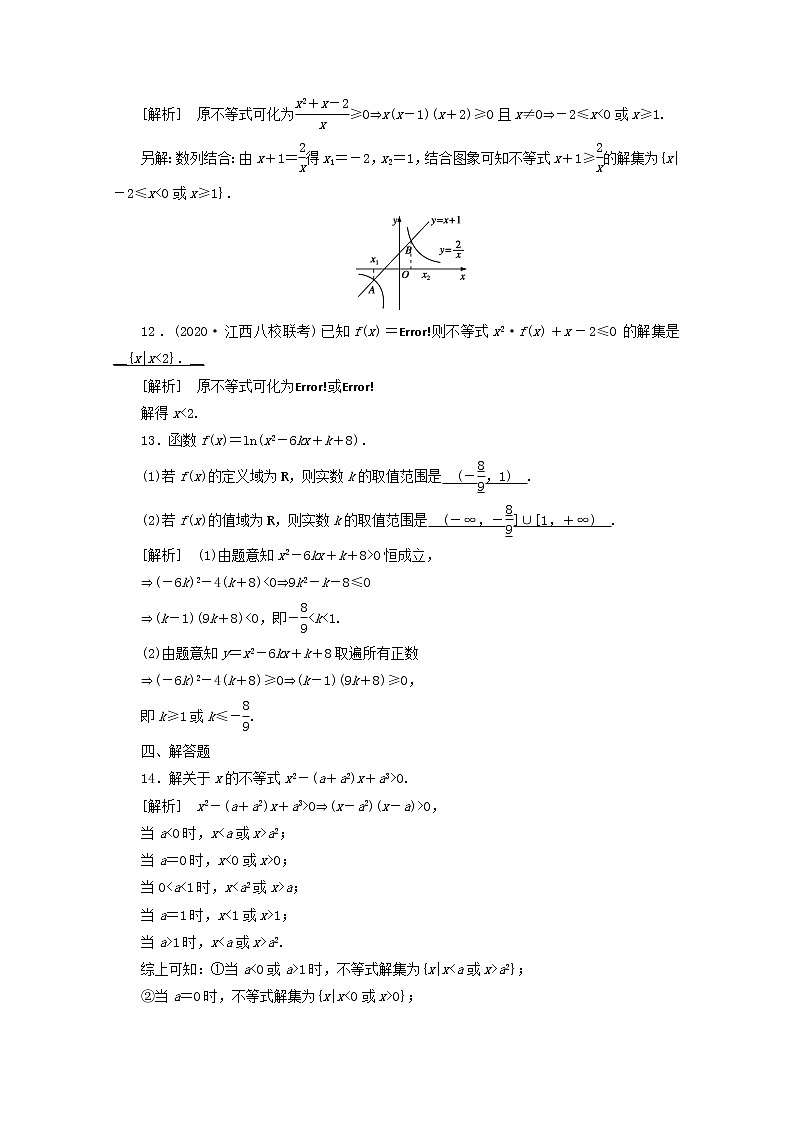 [解析]　原不等式可化为\frac{x²＋x－2}{x}≥0⇒x(x－1)(x＋2)≥0且x≠0⇒－2≤x<0或x≥1.
另解:数列结合:由x＋1＝\frac{2}{x}得x₁＝－2,x₂＝1,结合图象可知不等式x＋1≥\frac{2}{x}的解集为{x|
－2≤x<0或x≥1}.
y
y=x+1
B
y=\frac{2}{x}
x₁
O
x₂
x
A
12．(2020·江西八校联考)已知f(x)＝Error!则不等式x²·f(x)＋x－2≤0的解集是
__{x|x<2}.__
[解析]　原不等式可化为Error!或Error!
解得x<2.
13．函数f(x)＝ln(x²－6kx＋k＋8).
(1)若f(x)的定义域为R,则实数k的取值范围是__(－\frac{8}{9},1)__.
(2)若f(x)的值域为R,则实数k的取值范围是__(－∞,－\frac{8}{9}]∪[1,＋∞)__.
[解析]　(1)由题意知x²－6kx＋k＋8>0恒成立,
⇒(－6k)²－4(k＋8)<0⇒9k²－k－8≤0
⇒(k－1)(9k＋8)<0,即－\frac{8}{9}<k<1.
(2)由题意知y＝x²－6kx＋k＋8取遍所有正数
⇒(－6k)²－4(k＋8)≥0⇒(k－1)(9k＋8)≥0,
即k≥1或k≤－\frac{8}{9}.
四、解答题
14．解关于x的不等式x²－(a＋a²)x＋a³>0.
[解析]　x²－(a＋a²)x＋a³>0⇒(x－a²)(x－a)>0,
当a<0时,x<a或x>a²;
当a＝0时,x<0或x>0;
当0<a<1时,x<a²或x>a;
当a＝1时,x<1或x>1;
当a>1时,x<a或x>a².
综上可知:①当a<0或a>1时,不等式解集为{x|x<a或x>a²};
②当a＝0时,不等式解集为{x|x<0或x>0};